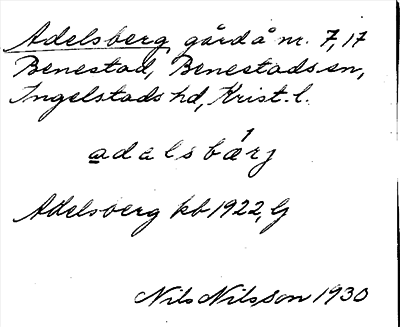 Adelsberg gård å nr. 7, 17
Benestad, Benestads sn,
Ingelstads hd, Krist. l.
adelsbærj
Adelsberg kb 1922, G
Nils Nilsson 1930